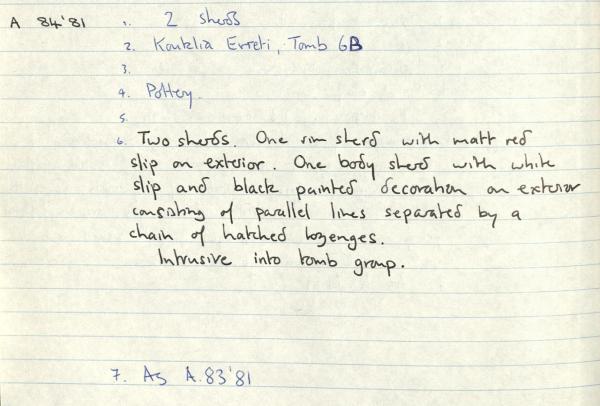 A 84'81
1. 2 sherds
2. Kouklia Evreti, Tomb 6B
3.
4. Pottery.
5.
6. Two sherds. One rim sherd with matt red
slip on exterior. One body sherd with white
slip and black painted decoration on exterior
consisting of parallel lines separated by a
chain of hatched lozenges.
Intrusive into tomb group.
7. As A.83'81